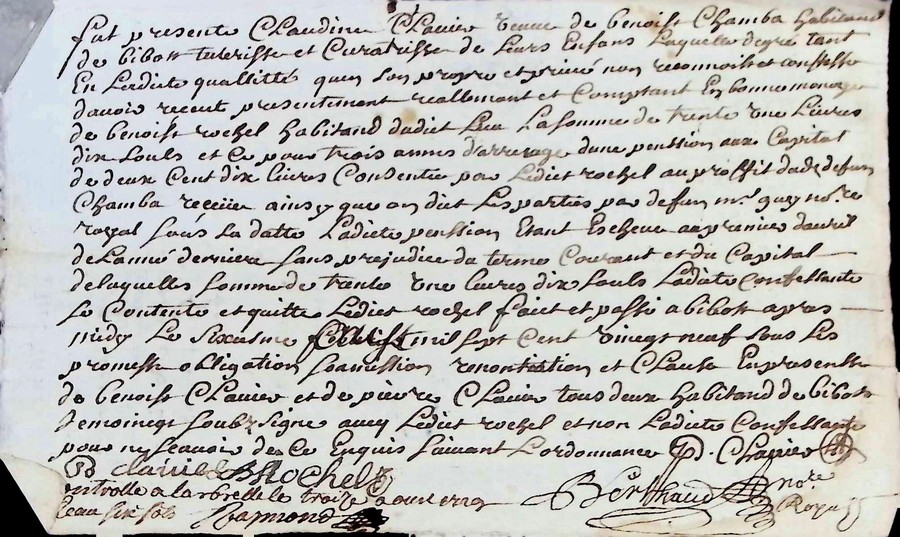 fut presente Claudine Clavier veuve de benoist Chamba habitand
de bibost tuterisse et Curatrisse de Leurs Enfans Laquelle degré tant
En Ladite quallitté quen son propre et privé non reconnoist et confesse
davoir receut presentement reallement et Comptant En bonne monoye
de benoist rochel habitand dudict Lieu La somme de trente une Livres
dix souls et Ce pour trois annes d'arrerage dune penssion aux Capital
de deux Cent dix livres Consentie par Ledict rochel au proffit dudt defun
Chamba receüe ainsy que on dict Les parties par defun mr guy nore
royal sous La datte Ladicte penssion Etant Escheue au premier davril
de Lanné derniere sans prejudice du terme Courant et du Capital
de laquelles somme de trante une livres dix souls Ladite Confessante
Se Contente et quitte Ledict rochel faict et passé a bibost apres
midy Le sixiesme aoust mil sept Cent vingt neuf sous Les
promesse obligation soumission renontiation et Clause En presentse
de benoist Clavier et de pierre Clavier tous deux habitand de bibost
temoingt soubsigne avecq Ledict rochel et non Ladicte Confessante
pour ny scavoir de Ce Enquis suivant Lordonnance P. Clavier
B clavier B Rochel
controlle a larbrelle le troize aoust 1729
Berthaud nore
Royal
Receu six sols Raymond